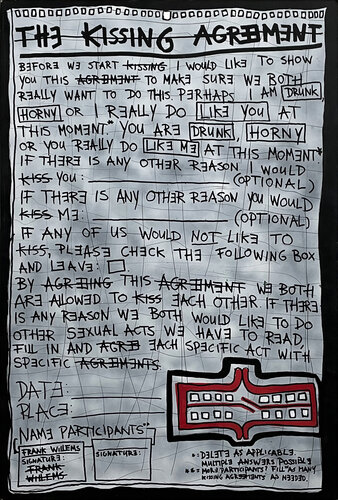 THE KISSING AGREEMENT
BEFORE WE START KISSING I WOULD LIKE TO SHOW
YOU THIS AGREEMENT TO MAKE SURE WE BOTH
REALLY WANT TO DO THIS. PERHAPS I AM DRUNK,
HORNY OR I REALLY DO LIKE YOU AT
THIS MOMENT* YOU ARE DRUNK, HORNY
OR YOU REALLY DO LIKE ME AT THIS MOMENT*
IF THERE IS ANY OTHER REASON I WOULD
KISS YOU: (OPTIONAL)
IF THERE IS ANY OTHER REASON YOU WOULD
KISS ME: (OPTIONAL)
IF ANY OF US WOULD NOT LIKE TO
KISS, PLEASE CHECK THE FOLLOWING BOX
AND LEAVE: .
BY AGREEING THIS AGREEMENT WE BOTH
ARE ALLOWED TO KISS EACH OTHER. IF THERE
IS ANY REASON WE BOTH WOULD LIKE TO DO
OTHER SEXUAL ACTS WE HAVE TO READ,
FILL IN AND AGREE EACH SPECIFIC ACT WITH
SPECIFIC AGREEMENTS.
DATE:
PLACE:
NAME PARTICIPANTS**
FRANK WILLEMS
SIGNATURE:
FRANK
WILLEMS
SIGNATURE:
*=DELETE AS APPLICABLE.
MULTIPLE ANSWERS POSSIBLE
**=MORE PARTICIPANTS? FILL AS MANY
KISSING AGREEMENTS AS NEEDED.